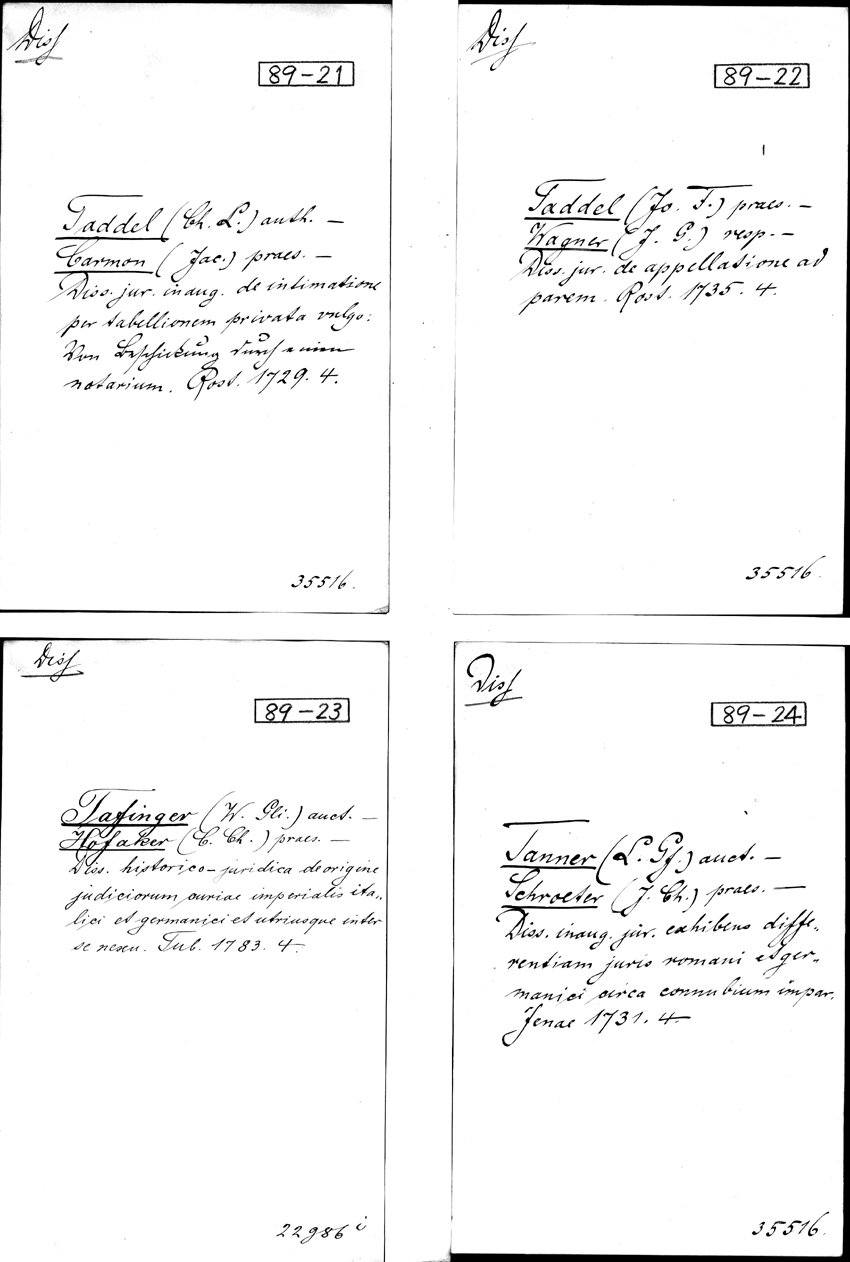 Diss
89-21
Taddel (Ch. L.) auth. —
Carmon (Jac.) praes. —
Diss. jur. inaug. de intimatione
per tabellionem privata vulgo:
Von Beschickung durch einen
notarium. Rost. 1729. 4.
35516.
Diss
89-22
Taddel (Jo. F.) praes. —
Wagner (J. G.) resp. —
Diss. jur. de appellatione ad
parem. Rost. 1735. 4.
35516.
Diss
89-23
Tafinger (W. Gli.) auct. —
Hofaker (C. Ch.) praes. —
Diss. historico-juridica de origine
judiciorum curiae imperialis ita„
lici et germanici et utriusque inter
se nexu. Tub. 1783. 4.
22986 i
Diss
89-24
Tanner (L. Gf.) auct. —
Schroeter (J. Ch.) praes. —
Diss. inaug. jur. exhibens diffe„
rentiam juris romani et ger„
manici circa connubium impar.
Jenae 1731. 4.
35516.